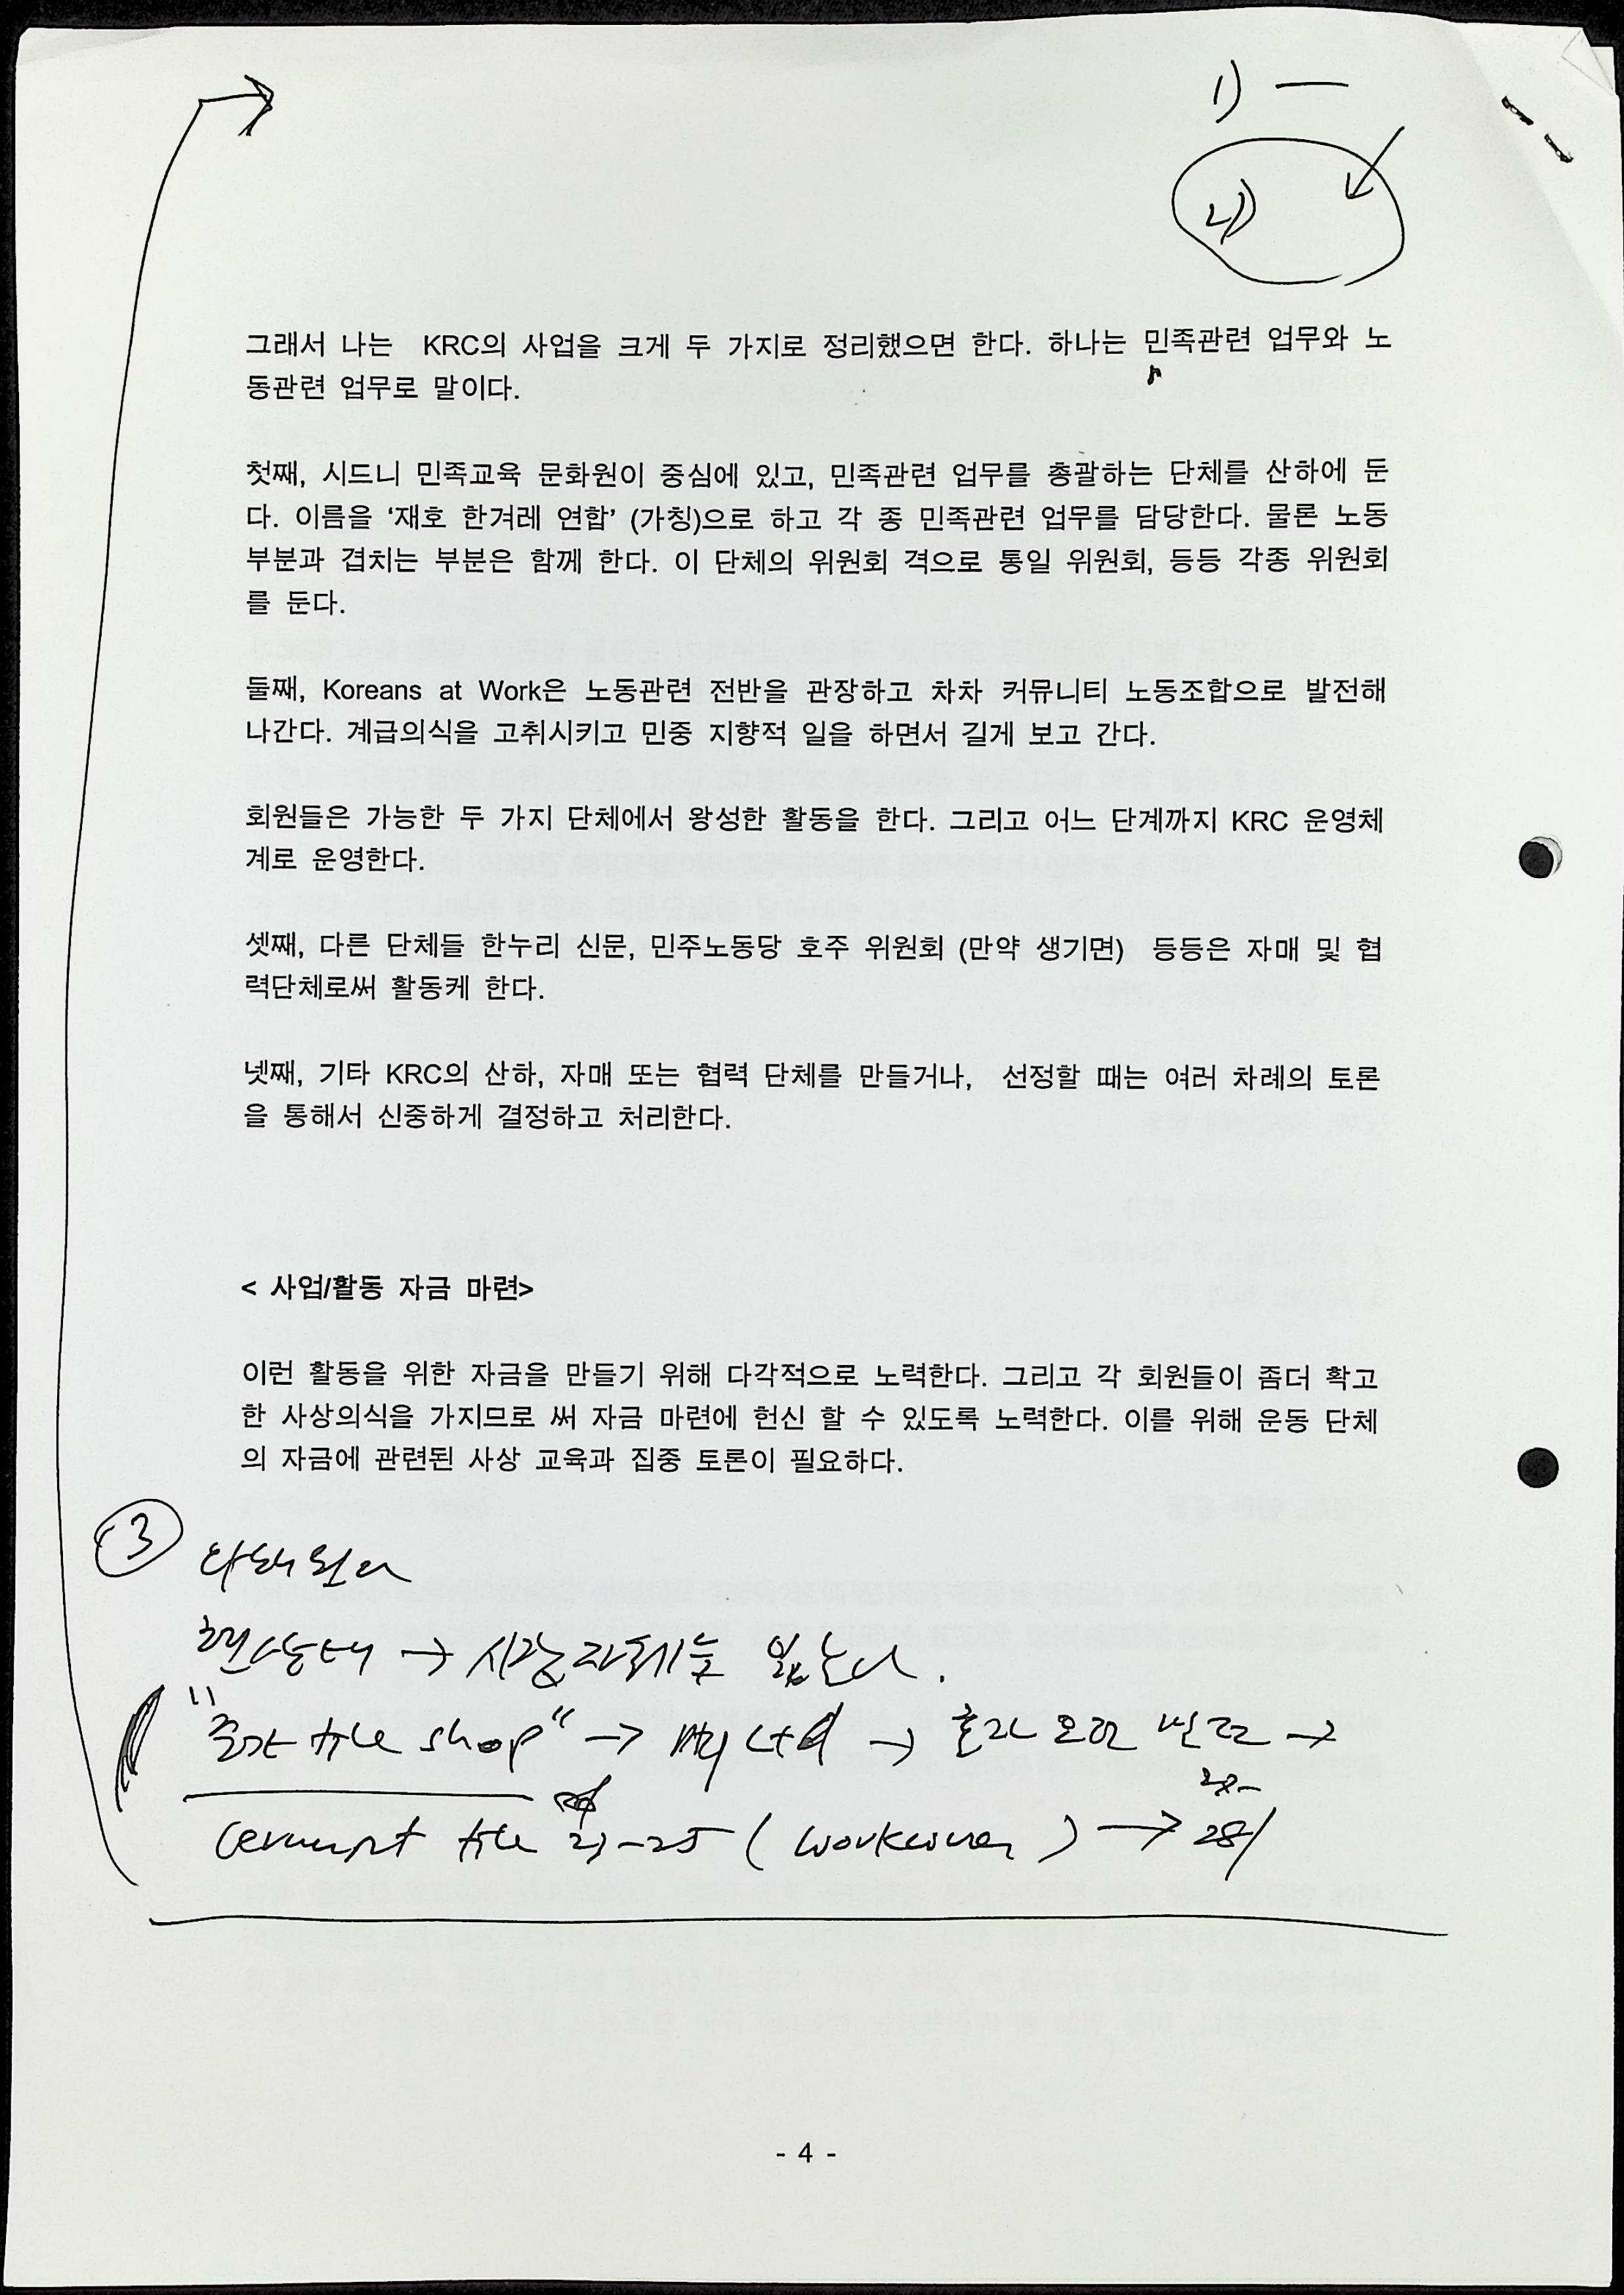 1) —
2)
그래서 나는 KRC의 사업을 크게 두 가지로 정리했으면 한다. 하나는 민족관련 업무와 노
동관련 업무로 말이다.
첫째, 시드니 민족교육 문화원이 중심에 있고, 민족관련 업무를 총괄하는 단체를 산하에 둔
다. 이름을 ‘재호 한겨레 연합’ (가칭)으로 하고 각 종 민족관련 업무를 담당한다. 물론 노동
부분과 겹치는 부분은 함께 한다. 이 단체의 위원회 격으로 통일 위원회, 등등 각종 위원회
를 둔다.
둘째, Koreans at Work은 노동관련 전반을 관장하고 차차 커뮤니티 노동조합으로 발전해
나간다. 계급의식을 고취시키고 민중 지향적 일을 하면서 길게 보고 간다.
회원들은 가능한 두 가지 단체에서 왕성한 활동을 한다. 그리고 어느 단계까지 KRC 운영체
계로 운영한다.
셋째, 다른 단체들 한누리 신문, 민주노동당 호주 위원회 (만약 생기면) 등등은 자매 및 협
력단체로써 활동케 한다.
넷째, 기타 KRC의 산하, 자매 또는 협력 단체를 만들거나, 선정할 때는 여러 차례의 토론
을 통해서 신중하게 결정하고 처리한다.
< 사업/활동 자금 마련>
이런 활동을 위한 자금을 만들기 위해 다각적으로 노력한다. 그리고 각 회원들이 좀더 확고
한 사상의식을 가지므로 써 자금 마련에 헌신 할 수 있도록 노력한다. 이를 위해 운동 단체
의 자금에 관련된 사상 교육과 집중 토론이 필요하다.
3
현상태 →
tile shop" → →  →
tile 23-25 ( ) → 28/
- 4 -